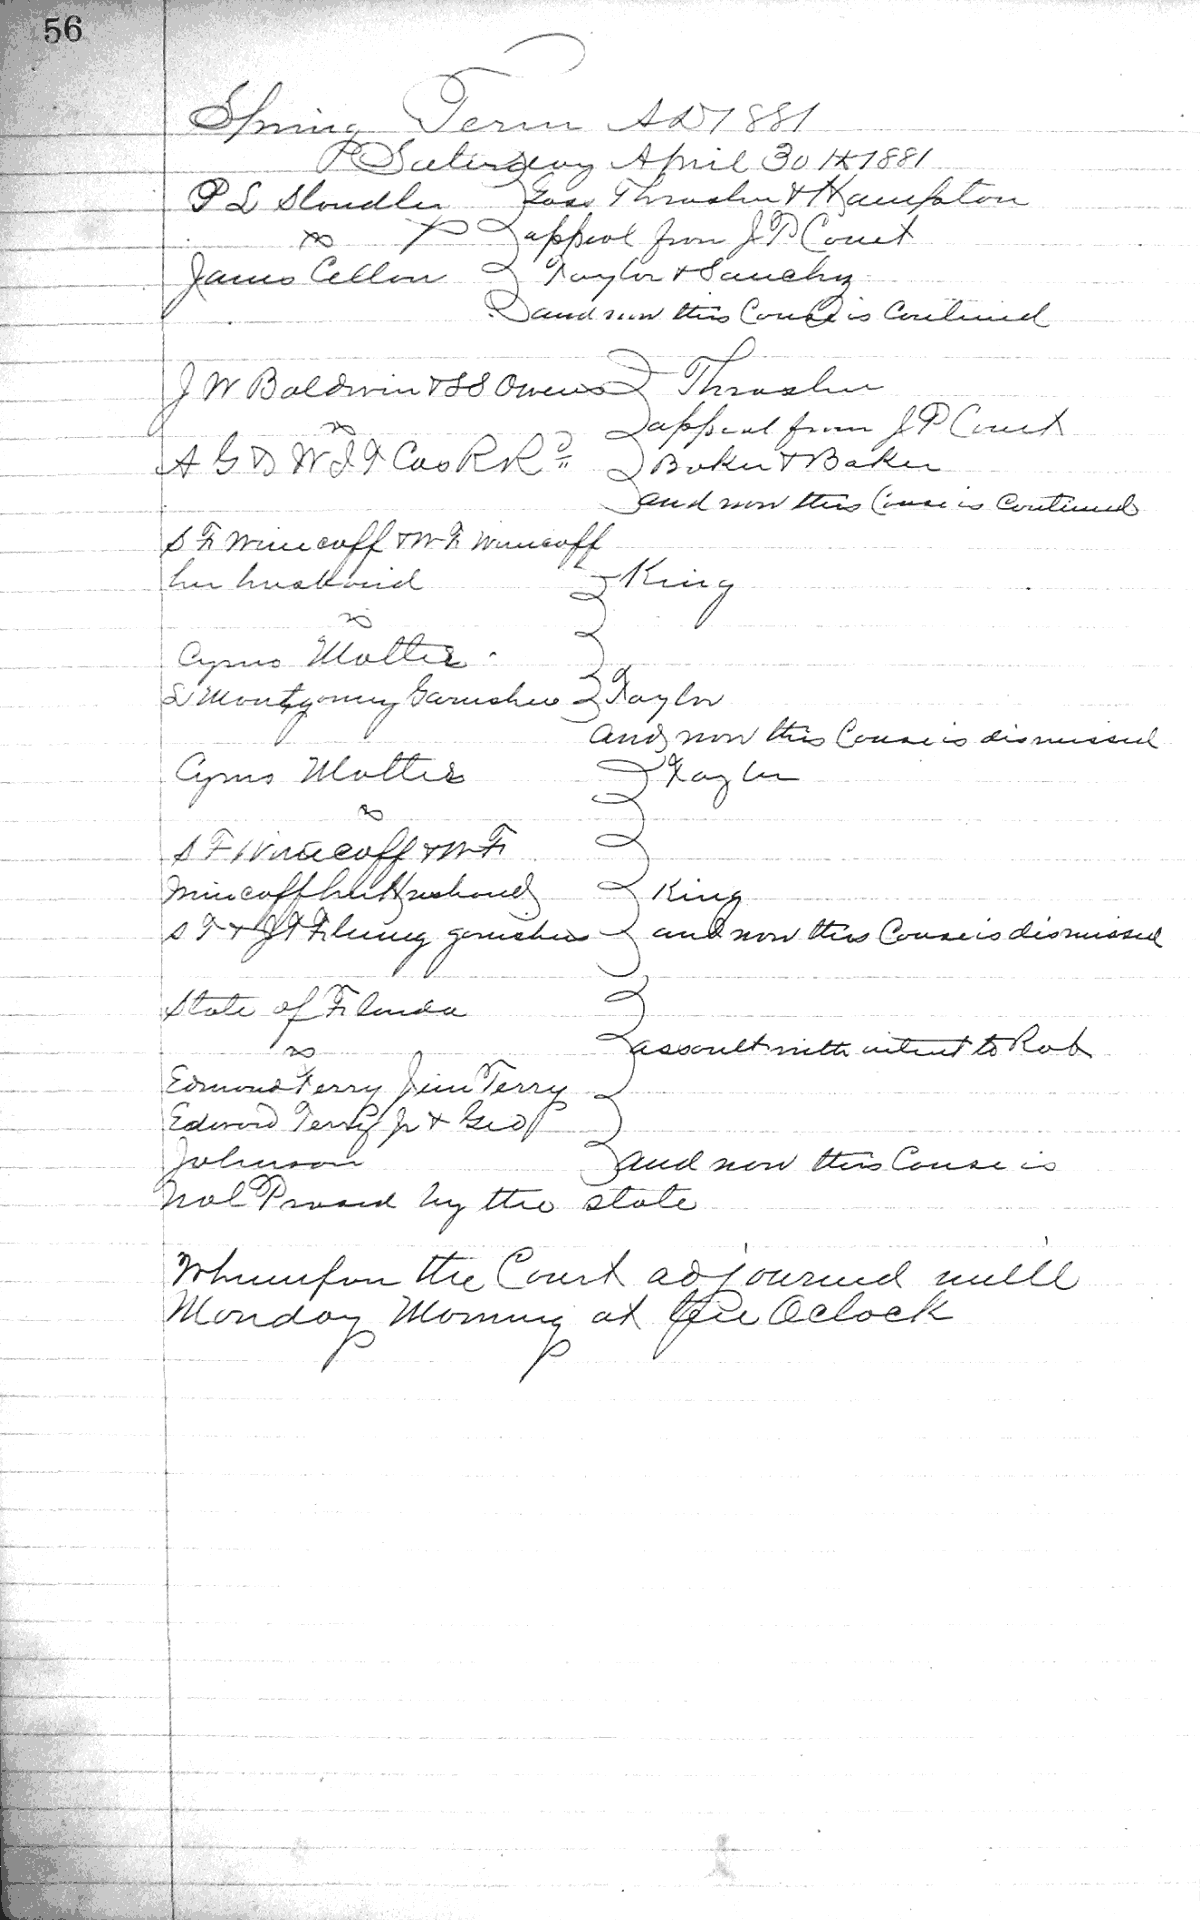 56
Spring Term AD 1881
Saturday April 30th 1881
P L Thrasher & Hampton
vs appeal from J P Court
James Cellon Taylor & Sanchez
and now this Couse is Continued
J W Baldwin & S S Owens Thrasher
vs appeal from J P Court
A G & W I T Cos R R Baker & Baker
and now this Couse is Continued
S F Wimcoff & W F Wimcoff
her husband King
vs
Cyrus Mottee
L Montgomery Garnishee Taylor
and now this Couse is dismissed
Cyrus Mottee Taylor
vs
S F Wimcoff & W F
Wimcoff her Husband King
S T & J T Fleming garnishees and now this Couse is dismissed
State of Florida
vs assault with intent to Rob
Edmond Terry Jim Terry
Edword Terry Jr & Geo
Johnson and now this Couse is
Nol Prosed by the state
Whereupon the Court adjourned untill
Monday Morning at Oclock